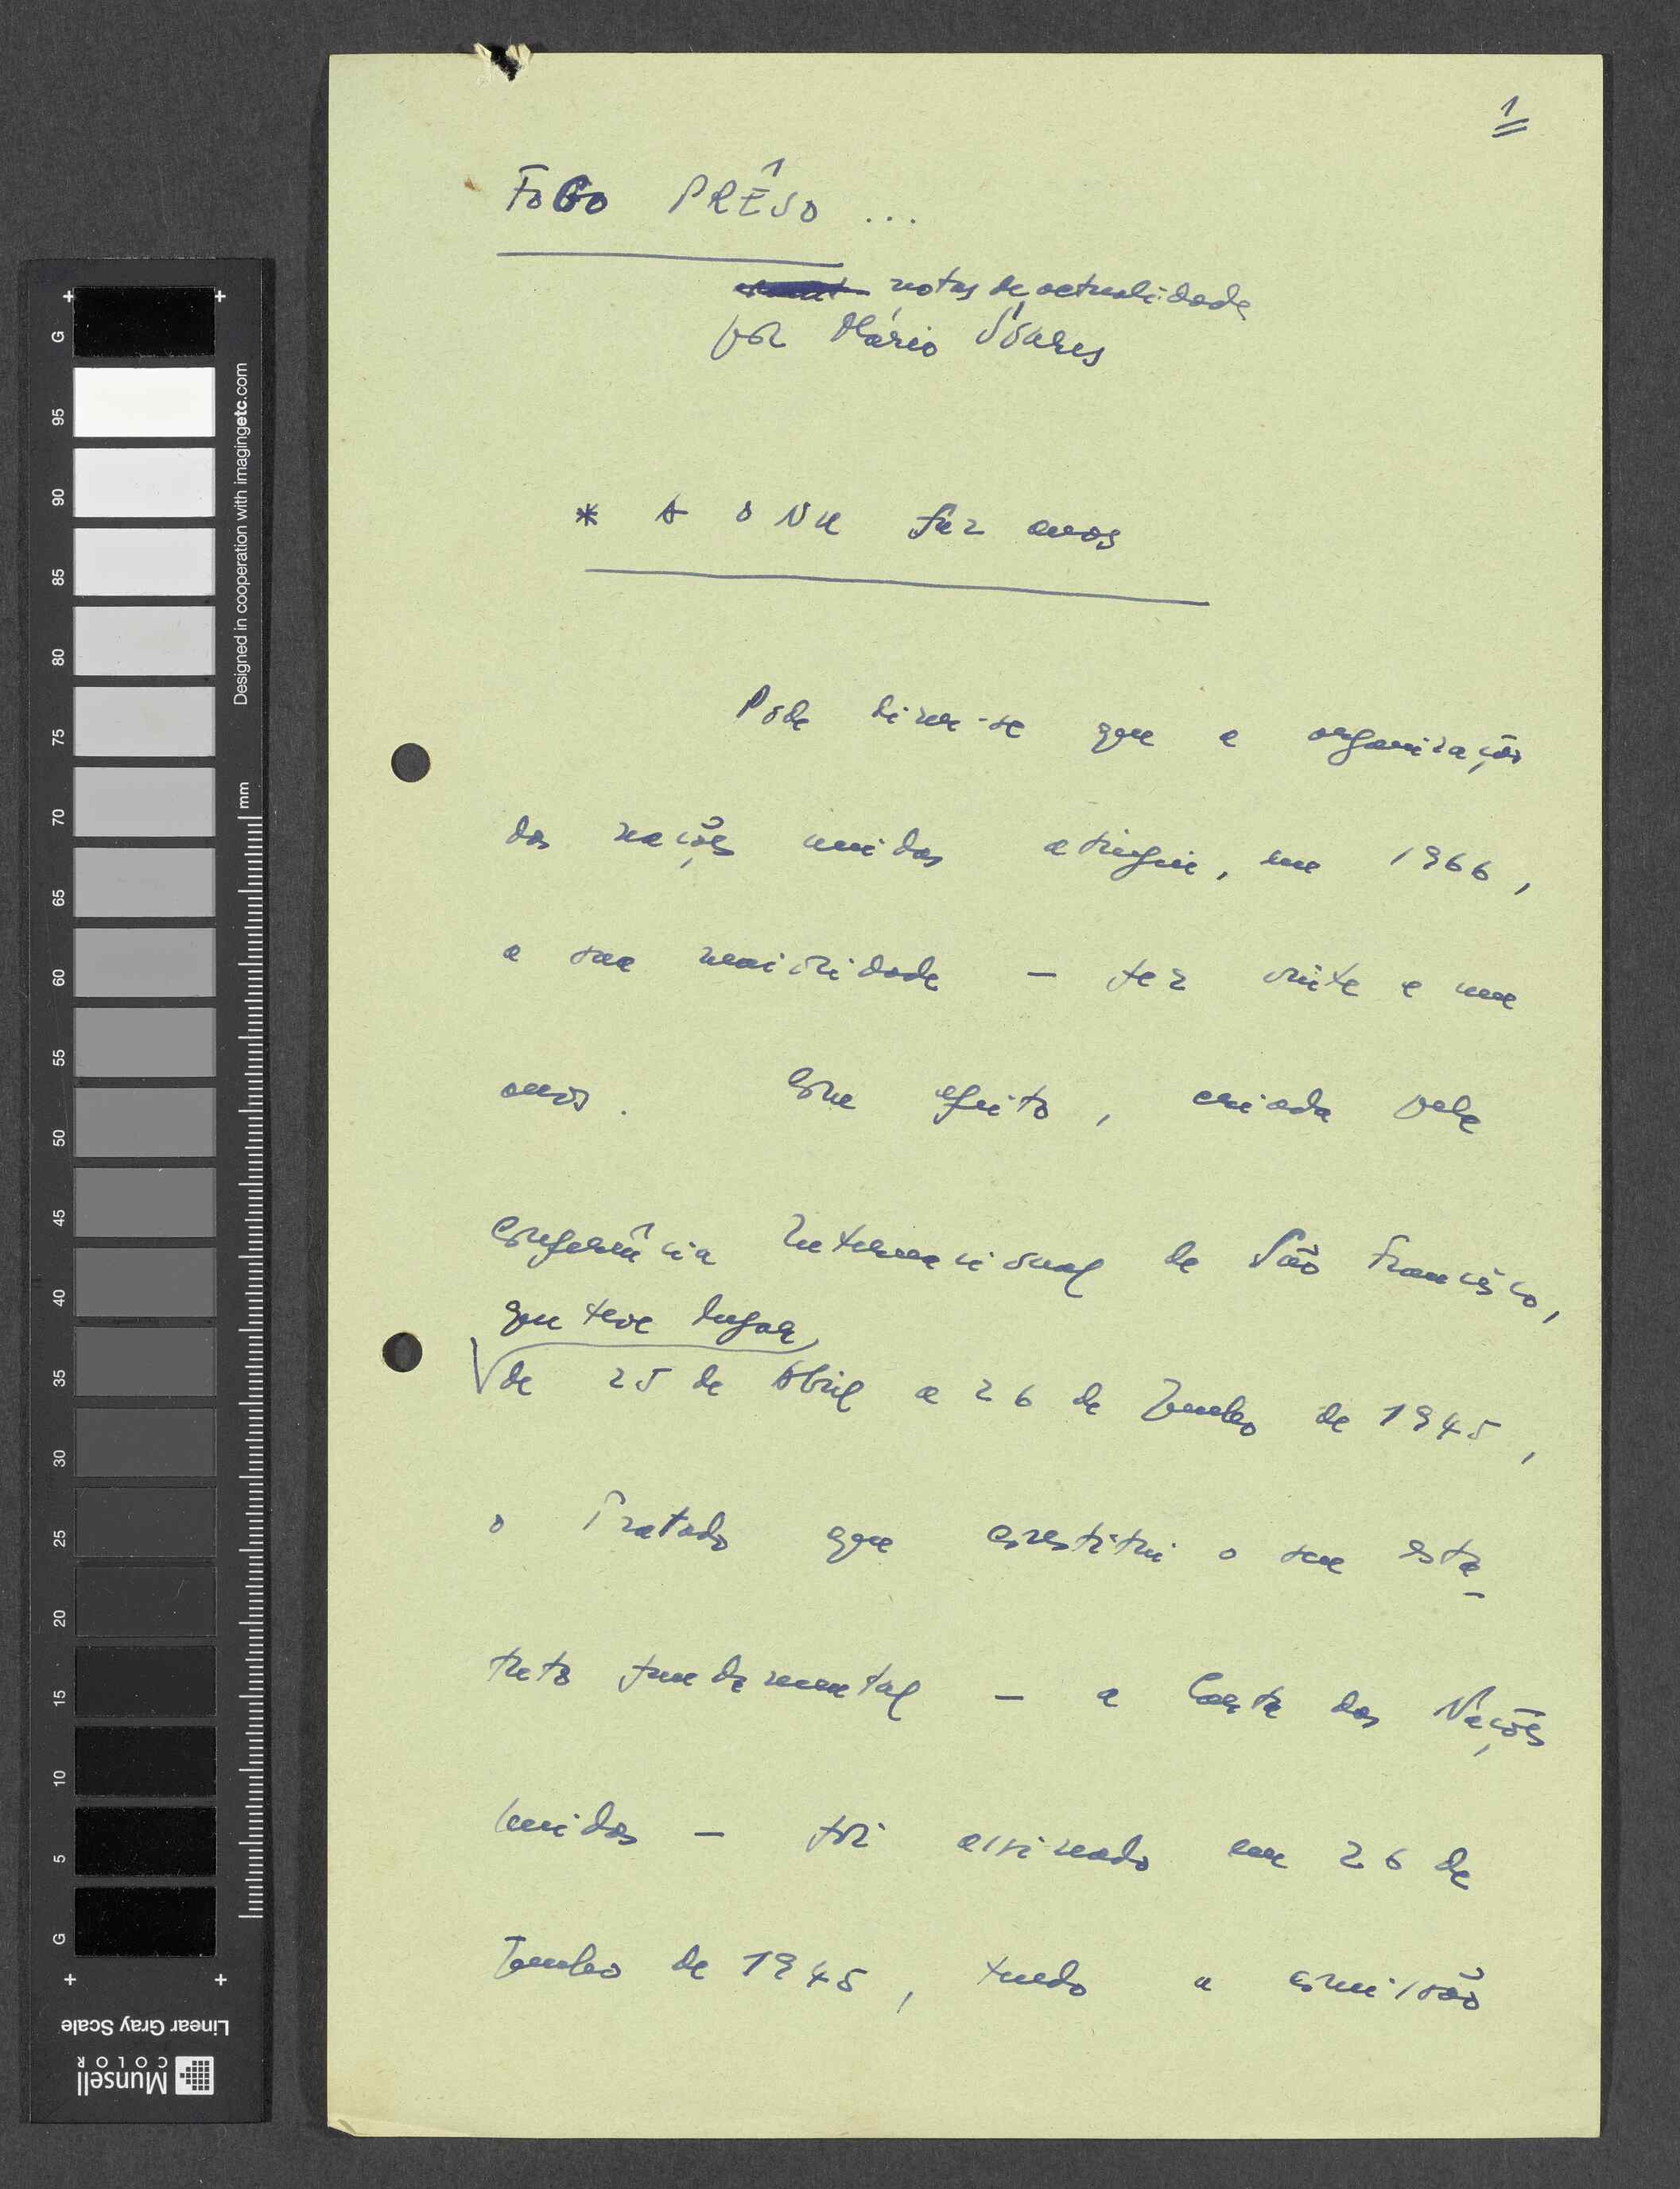 1
FOGO PRÊSO ...
notas de actualidade
por Mário Soares
* A ONU fez anos
Pode dizer-se que a organização
das nações unidas atingiu, em 1966,
a sua maioridade — fez vinte e um
anos. Com efeito, criada pela
Conferência Internacional de São Francisco,
que teve lugar
de 25 de Abril a 26 de Junho de 1945,
o Tratado que constitui o seu esta-
tuto fundamental — a Carta das Nações
Unidas — foi assinado em 26 de
Junho de 1945, tendo a comissão
G
95
90
85
80
75
70
65
60
55
50
45
40
35
30
25
20
15
10
5
G
Designed in cooperation with imagingetc.com
mm
Linear Gray Scale
Munsell
COLOR